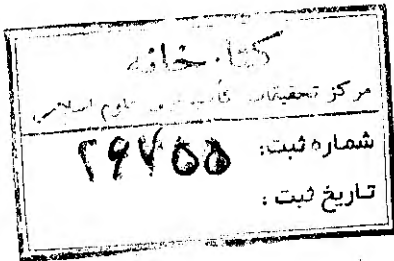 کتابخانه
مرکز تحقیقات کامپیوتری علوم اسلامی
شماره ثبت: ۲۹۷۵۵
تاریخ ثبت: